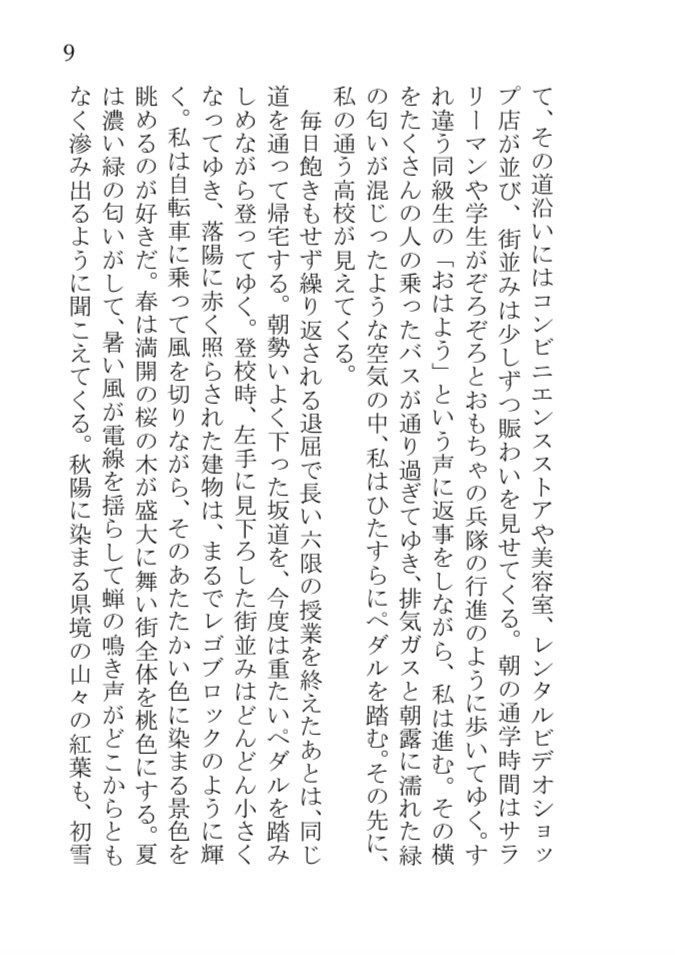 9
て、その道沿いにはコンビニエンスストアや美容室、レンタルビデオショッ
プ店が並び、街並みは少しずつ賑わいを見せてくる。朝の通学時間はサラ
リーマンや学生がぞろぞろとおもちゃの兵隊の行進のように歩いてゆく。す
れ違う同級生の「おはよう」という声に返事をしながら、私は進む。その横
をたくさんの人の乗ったバスが通り過ぎてゆき、排気ガスと朝露に濡れた緑
の匂いが混じったような空気の中、私はひたすらにペダルを踏む。その先に、
私の通う高校が見えてくる。
毎日飽きもせず繰り返される退屈で長い六限の授業を終えたあとは、同じ
道を通って帰宅する。朝勢いよく下った坂道を、今度は重たいペダルを踏み
しめながら登ってゆく。登校時、左手に見下ろした街並みはどんどん小さく
なってゆき、落陽に赤く照らされた建物は、まるでレゴブロックのように輝
く。私は自転車に乗って風を切りながら、そのあたたかい色に染まる景色を
眺めるのが好きだ。春は満開の桜の木が盛大に舞い街全体を桃色にする。夏
は濃い緑の匂いがして、暑い風が電線を揺らして蝉の鳴き声がどこからとも
なく滲み出るように聞こえてくる。秋陽に染まる県境の山々の紅葉も、初雪